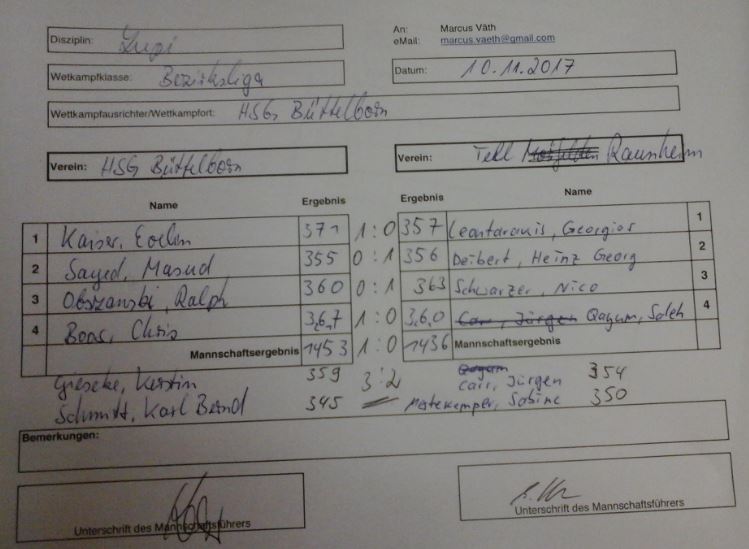 Disziplin: Lupi
An: Marcus Väth
eMail: marcus.vaeth@gmail.com
Wetkampfklasse: Bezirksliga
Datum: 10.11.2017
Wettkampfausrichter/Wettkampfort: HSG Büttelborn
Verein: HSG Büttelborn
Verein: Tell Raunheim
Name Ergebnis Ergebnis Name
1 Kaiser, Evelin 371 1:0 357 Leontaranis, Georgios 1
2 Sayed, Masud 355 0:1 356 Deibert, Heinz Georg 2
3 Obszanski, Ralph 360 0:1 363 Schwarzer, Nico 3
4 Boos, Chris 3,6,7 1:0 3,6,0 Carr, Jürgen Qayum, Saleh 4
Mannschaftsergebnis 1453 1:0 1436 Mannschaftsergebnis
Gieseke, Kerstin 359 3:2 Qayum Carr, Jürgen 354
Schmitt, Karl Bernd 345 Sabine 350
Bemerkungen:
Unterschrift des Mannschaftsführers
Unterschrift des Mannschaftsführers